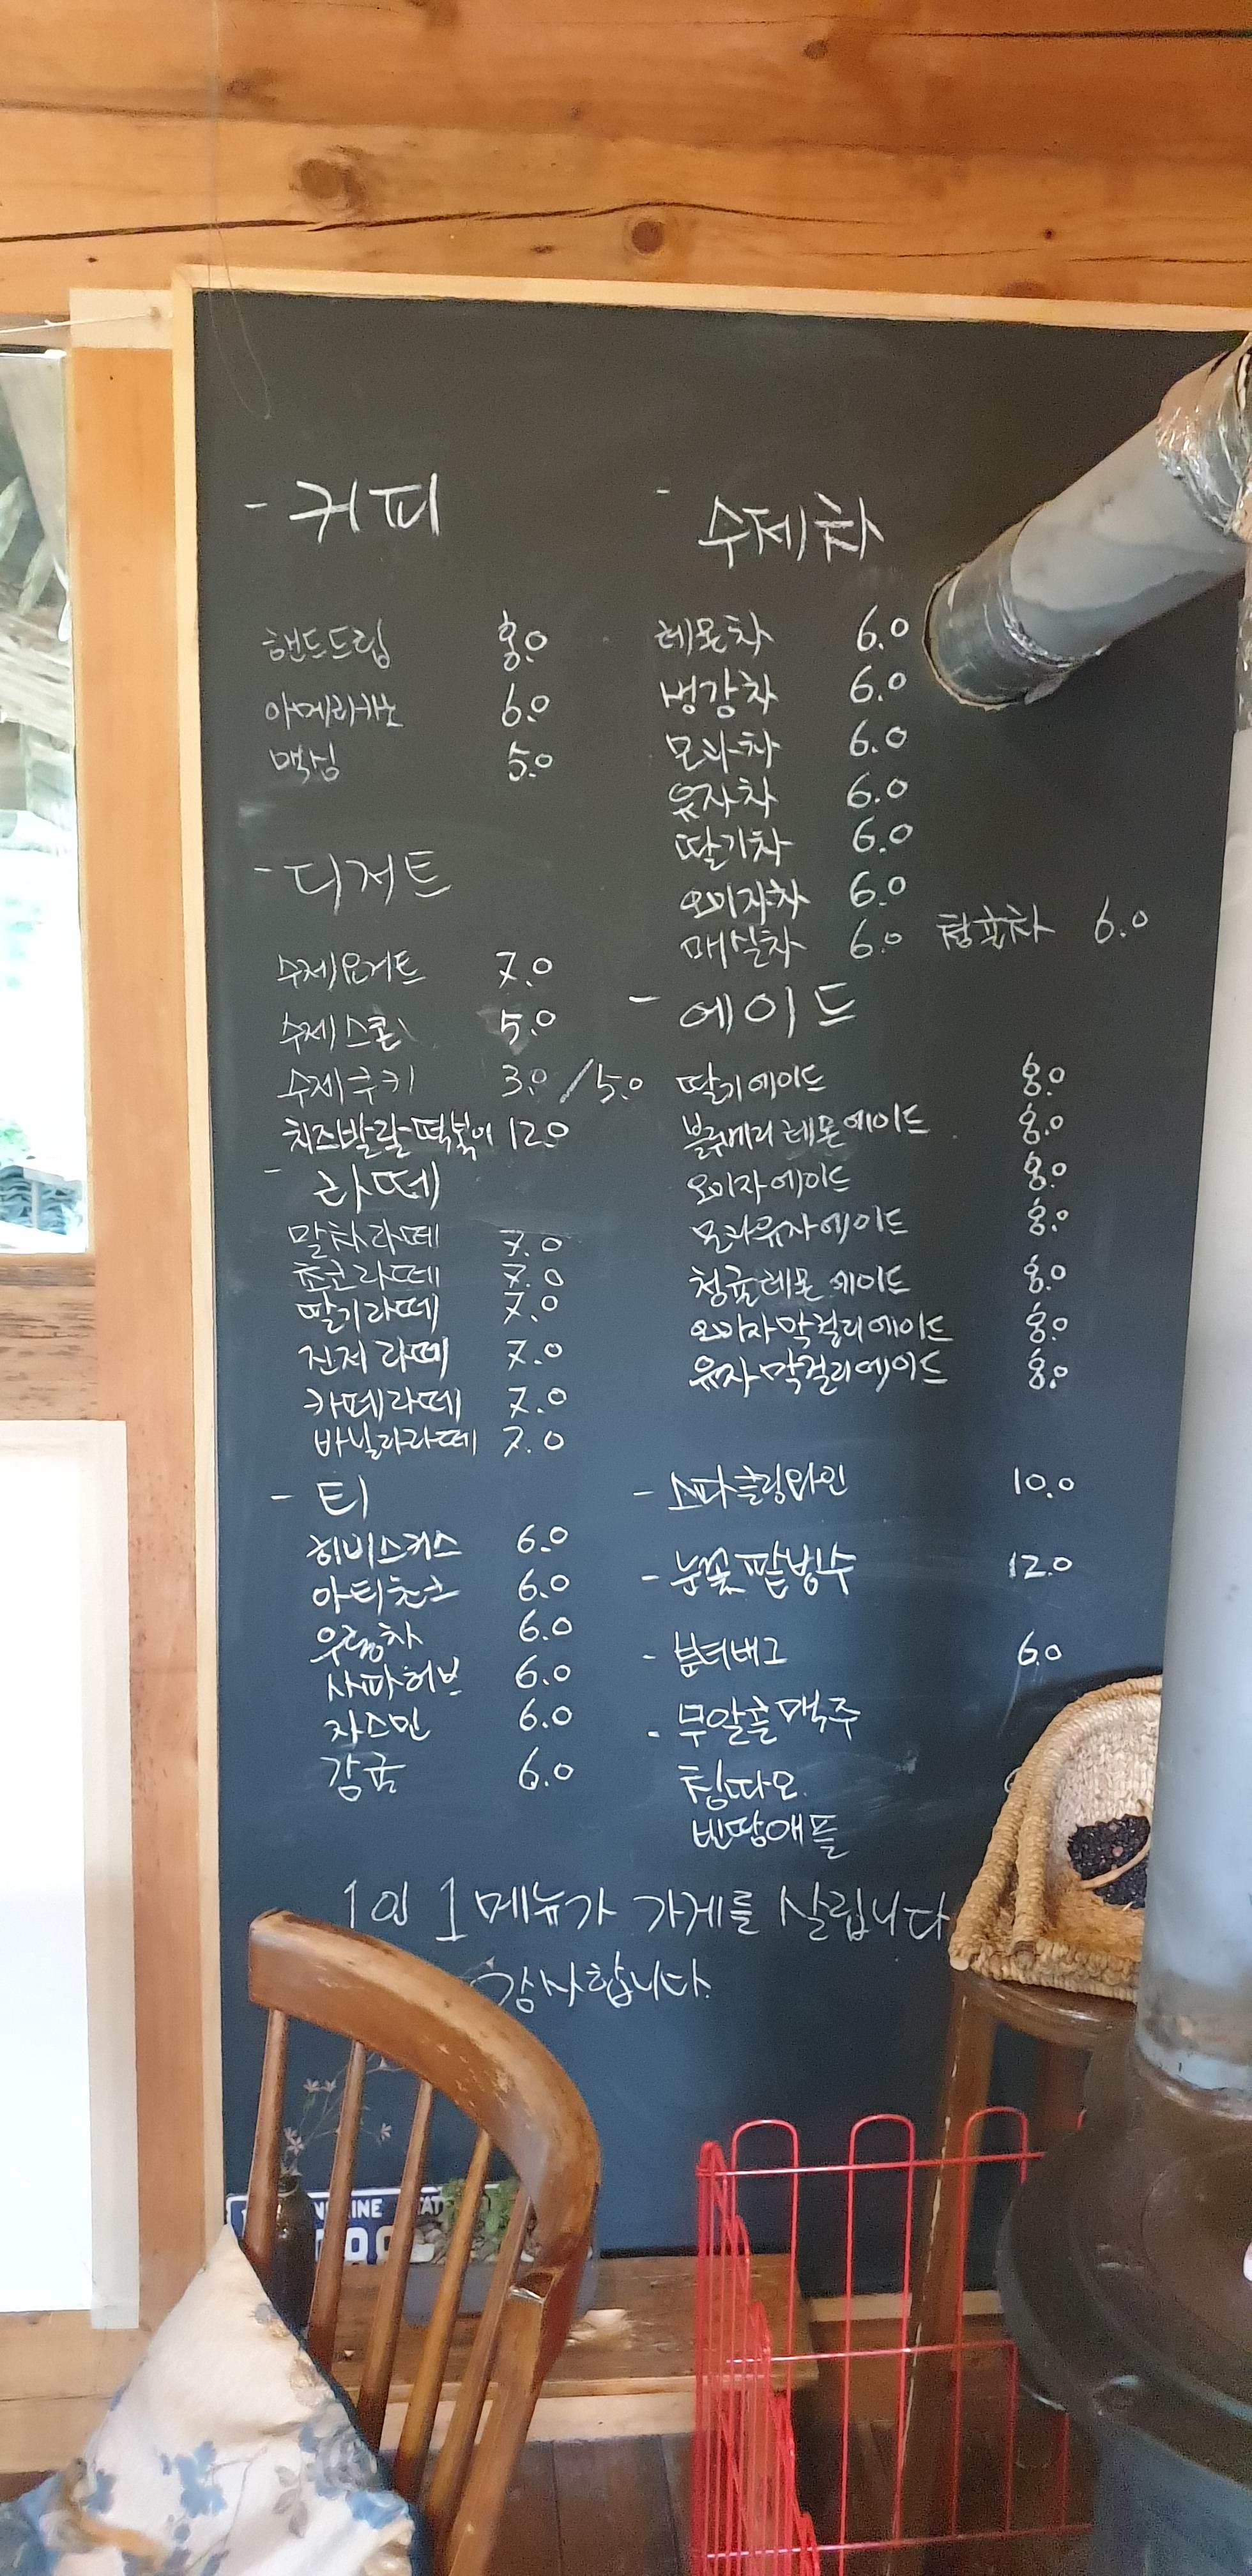 - 커피
핸드드립 8.0
아메리카노 6.0
맥심 5.0
- 디저트
수제요거트 7.0
수제스콘 5.0
수제쿠키 3.0/5.0
치즈발랄떡볶이 12.0
- 라떼
말차라떼 7.0
쵸코라떼 7.0
딸기라떼 7.0
진저라떼 7.0
카페라떼 7.0
바닐라라떼 7.0
- 티
히비스커스 6.0
아티쵸크 6.0
우롱차 6.0
사파허브 6.0
자스민 6.0
감귤 6.0
- 수제차
레몬차 6.0
생강차 6.0
모과차 6.0
유자차 6.0
딸기차 6.0
오미자차 6.0
매실차 6.0 청귤차 6.0
- 에이드
딸기에이드 8.0
블루베리레몬에이드 8.0
오미자에이드 8.0
모과유자에이드 8.0
청귤레몬에이드 8.0
오미자막걸리에이드 8.0
유자막걸리에이드 8.0
- 스파클링와인 10.0
- 눈꽃팥빙수 12.0
- 분터버그 6.0
- 무알콜맥주
칭따오
빈땅애플
1인 1메뉴가 가게를 살립니다
감사합니다.